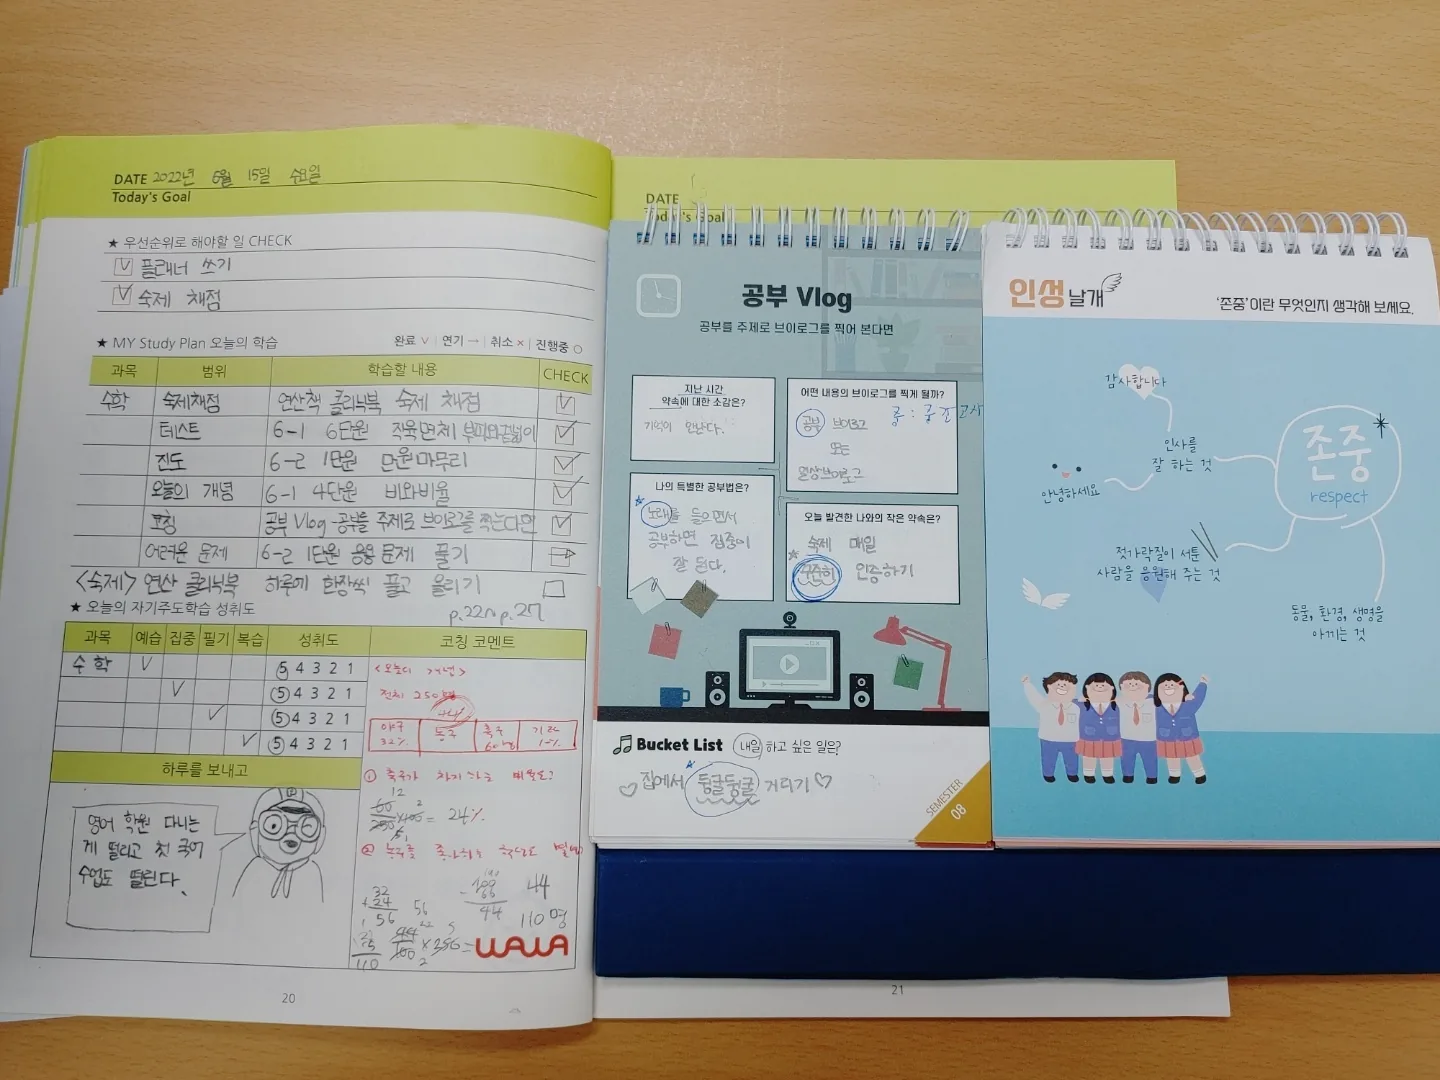 DATE 2022년 6월 15일 수요일
Today's Goal
★ 우선순위로 해야할 일 CHECK
플래너 쓰기
숙제 채점
★ MY Study Plan 오늘의 학습 완료 ∨ | 연기 → | 취소 × | 진행중 ○
과목 범위 학습할 내용 CHECK
수학 숙제채점 연산책 클리닉북 숙제 채점
테스트 6-1 6단원 직육면체 부피와겉넓이
진도 6-2 1단원 단원마무리
오늘의 개념 6-1 4단원 비와비율
코칭 공부 Vlog-공부를 주제로 브이로그를 찍는다면
어려운 문제 6-2 1단원 응용 문제 풀기
<숙제> 연산 클리닉북 하루에 한장씩 풀고 올리기
p.22~p.27
★ 오늘의 자기주도학습 성취도
과목 예습 집중 필기 복습 성취도 코칭 코멘트
수학 ∨ 5 4 3 2 1
∨ 5 4 3 2 1
∨ 5 4 3 2 1
∨ 5 4 3 2 1
<오늘의 개념>
전체 250명
44
야구 32% 농구 축구 60명 기타
①
12
= 24%
②
32
+24
56
56
44
44
110명
110
하루를 보내고
영어 학원 다니는
게 떨리고 첫 국어
수업도 떨린다.
WAWA
20
DATE
Today's Goal
공부 Vlog
공부를 주제로 브이로그를 찍어 본다면
지난 시간
약속에 대한 소감은?
기억이 안난다.
어떤 내용의 브이로그를 찍게 될까?
공부 브이로그
또는
일상브이로그
나의 특별한 공부법은?
노래를 들으면서
공부하면 집중이
잘 된다.
오늘 발견한 나와의 작은 약속은?
숙제 매일
꾸준히 인증하기
Bucket List 내일 하고 싶은 일은?
♡집에서 뒹굴뒹굴 거리기♡
SEMESTER
08
21
인성날개
'존중'이란 무엇인지 생각해 보세요.
감사합니다
인사를
잘 하는 것
안녕하세요
존중
respect
젓가락질이 서툰
사람을 응원해 주는 것
동물, 환경, 생명을
아끼는 것